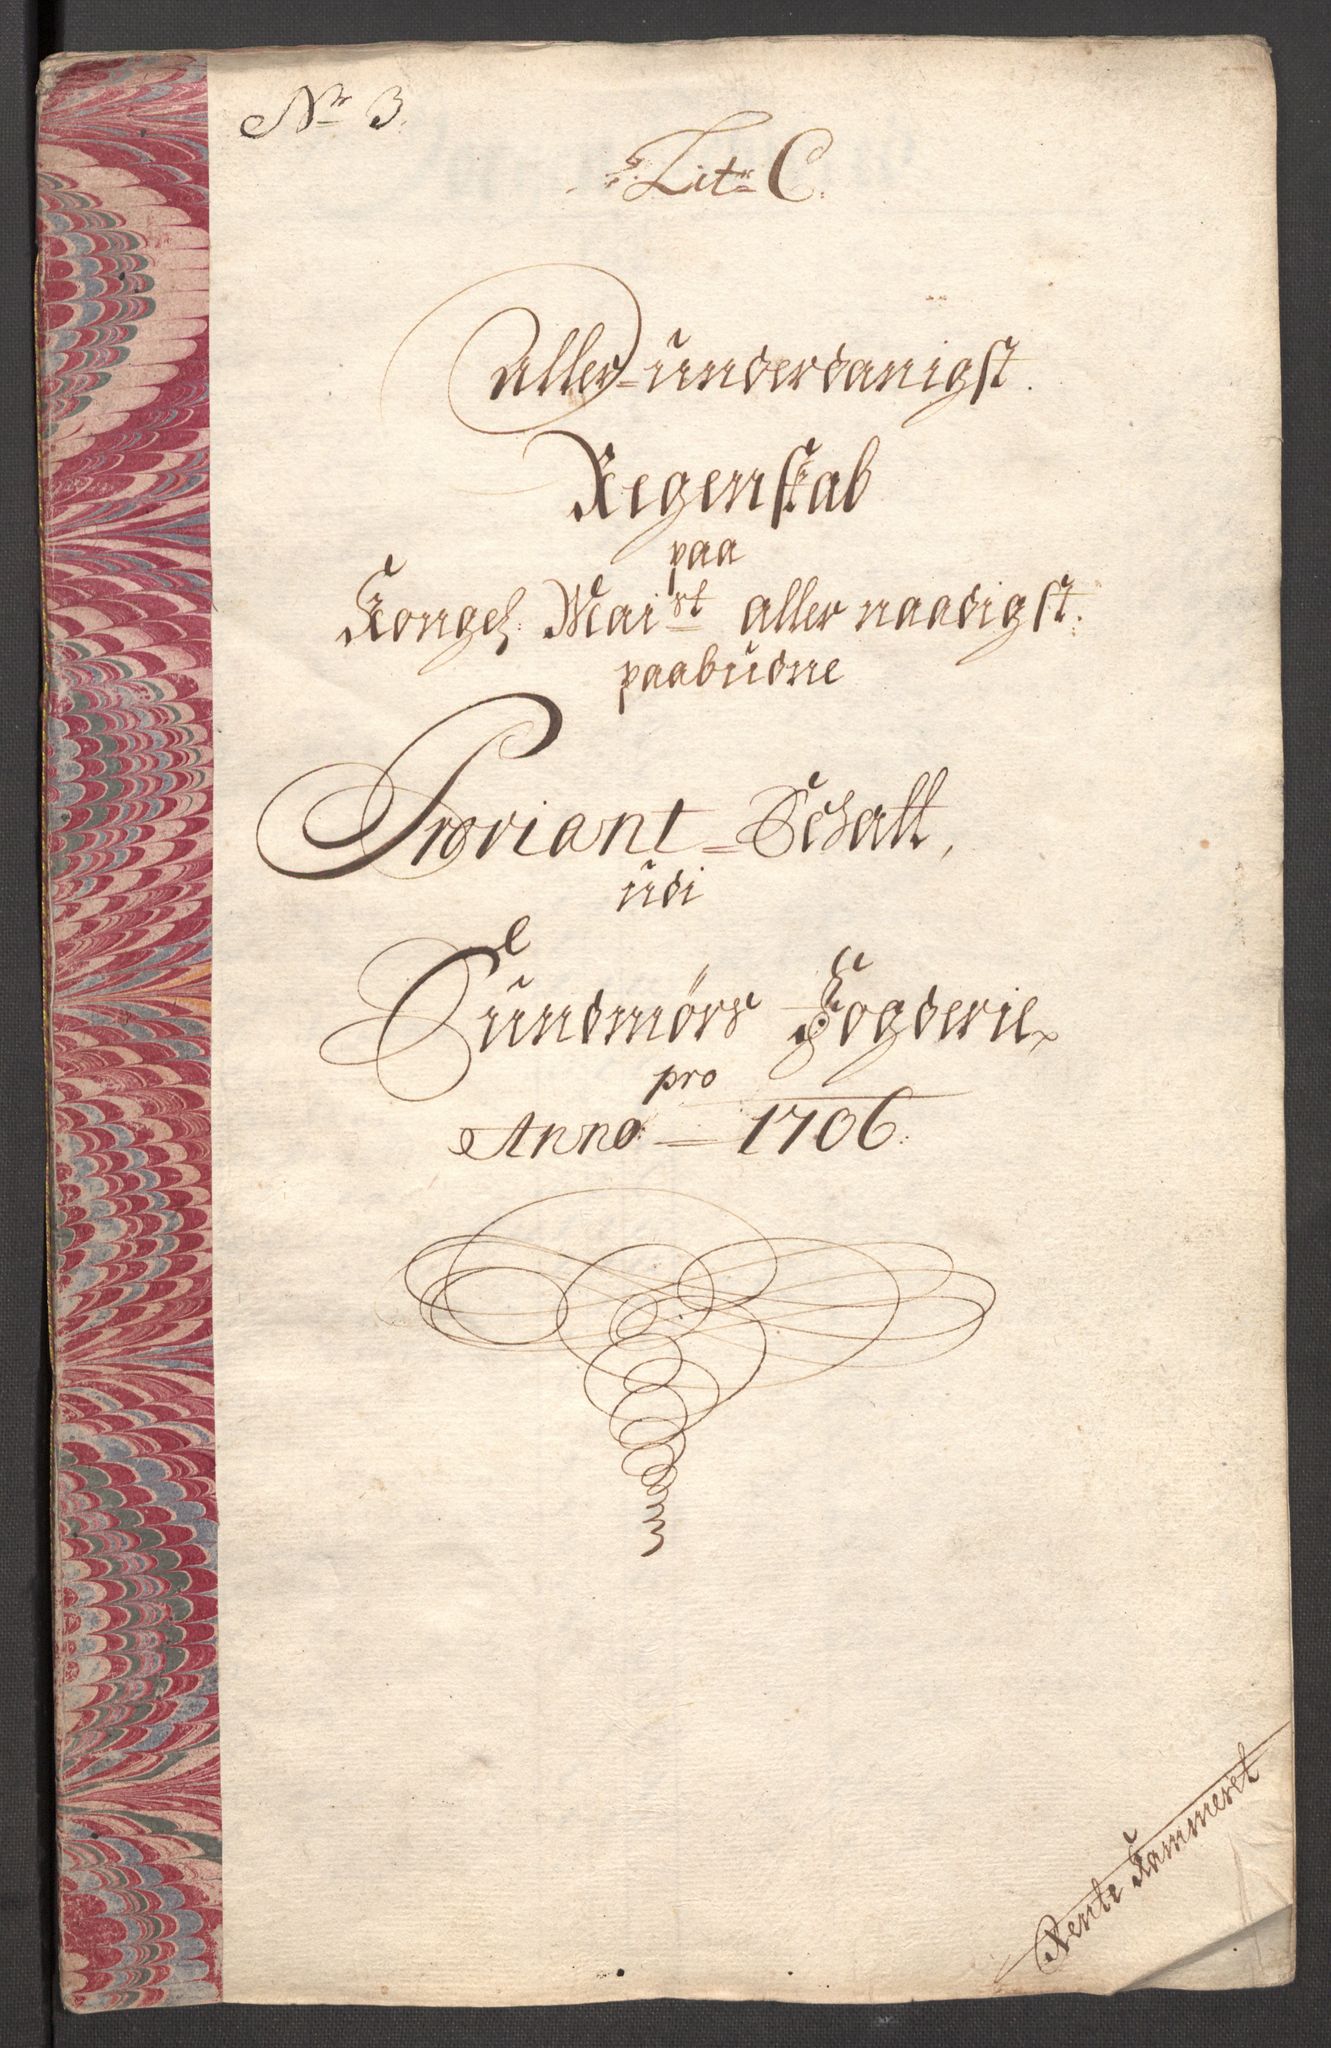 Nr 3.
Litr C.
Aller-underdanigst
Regenskab
paa
Kongel: Mai st aller naadigst
paabudne
Proviant-Schatt,
udi
Sundmørs Fogderie
pro
Anno 1706.
Rente Kammeret